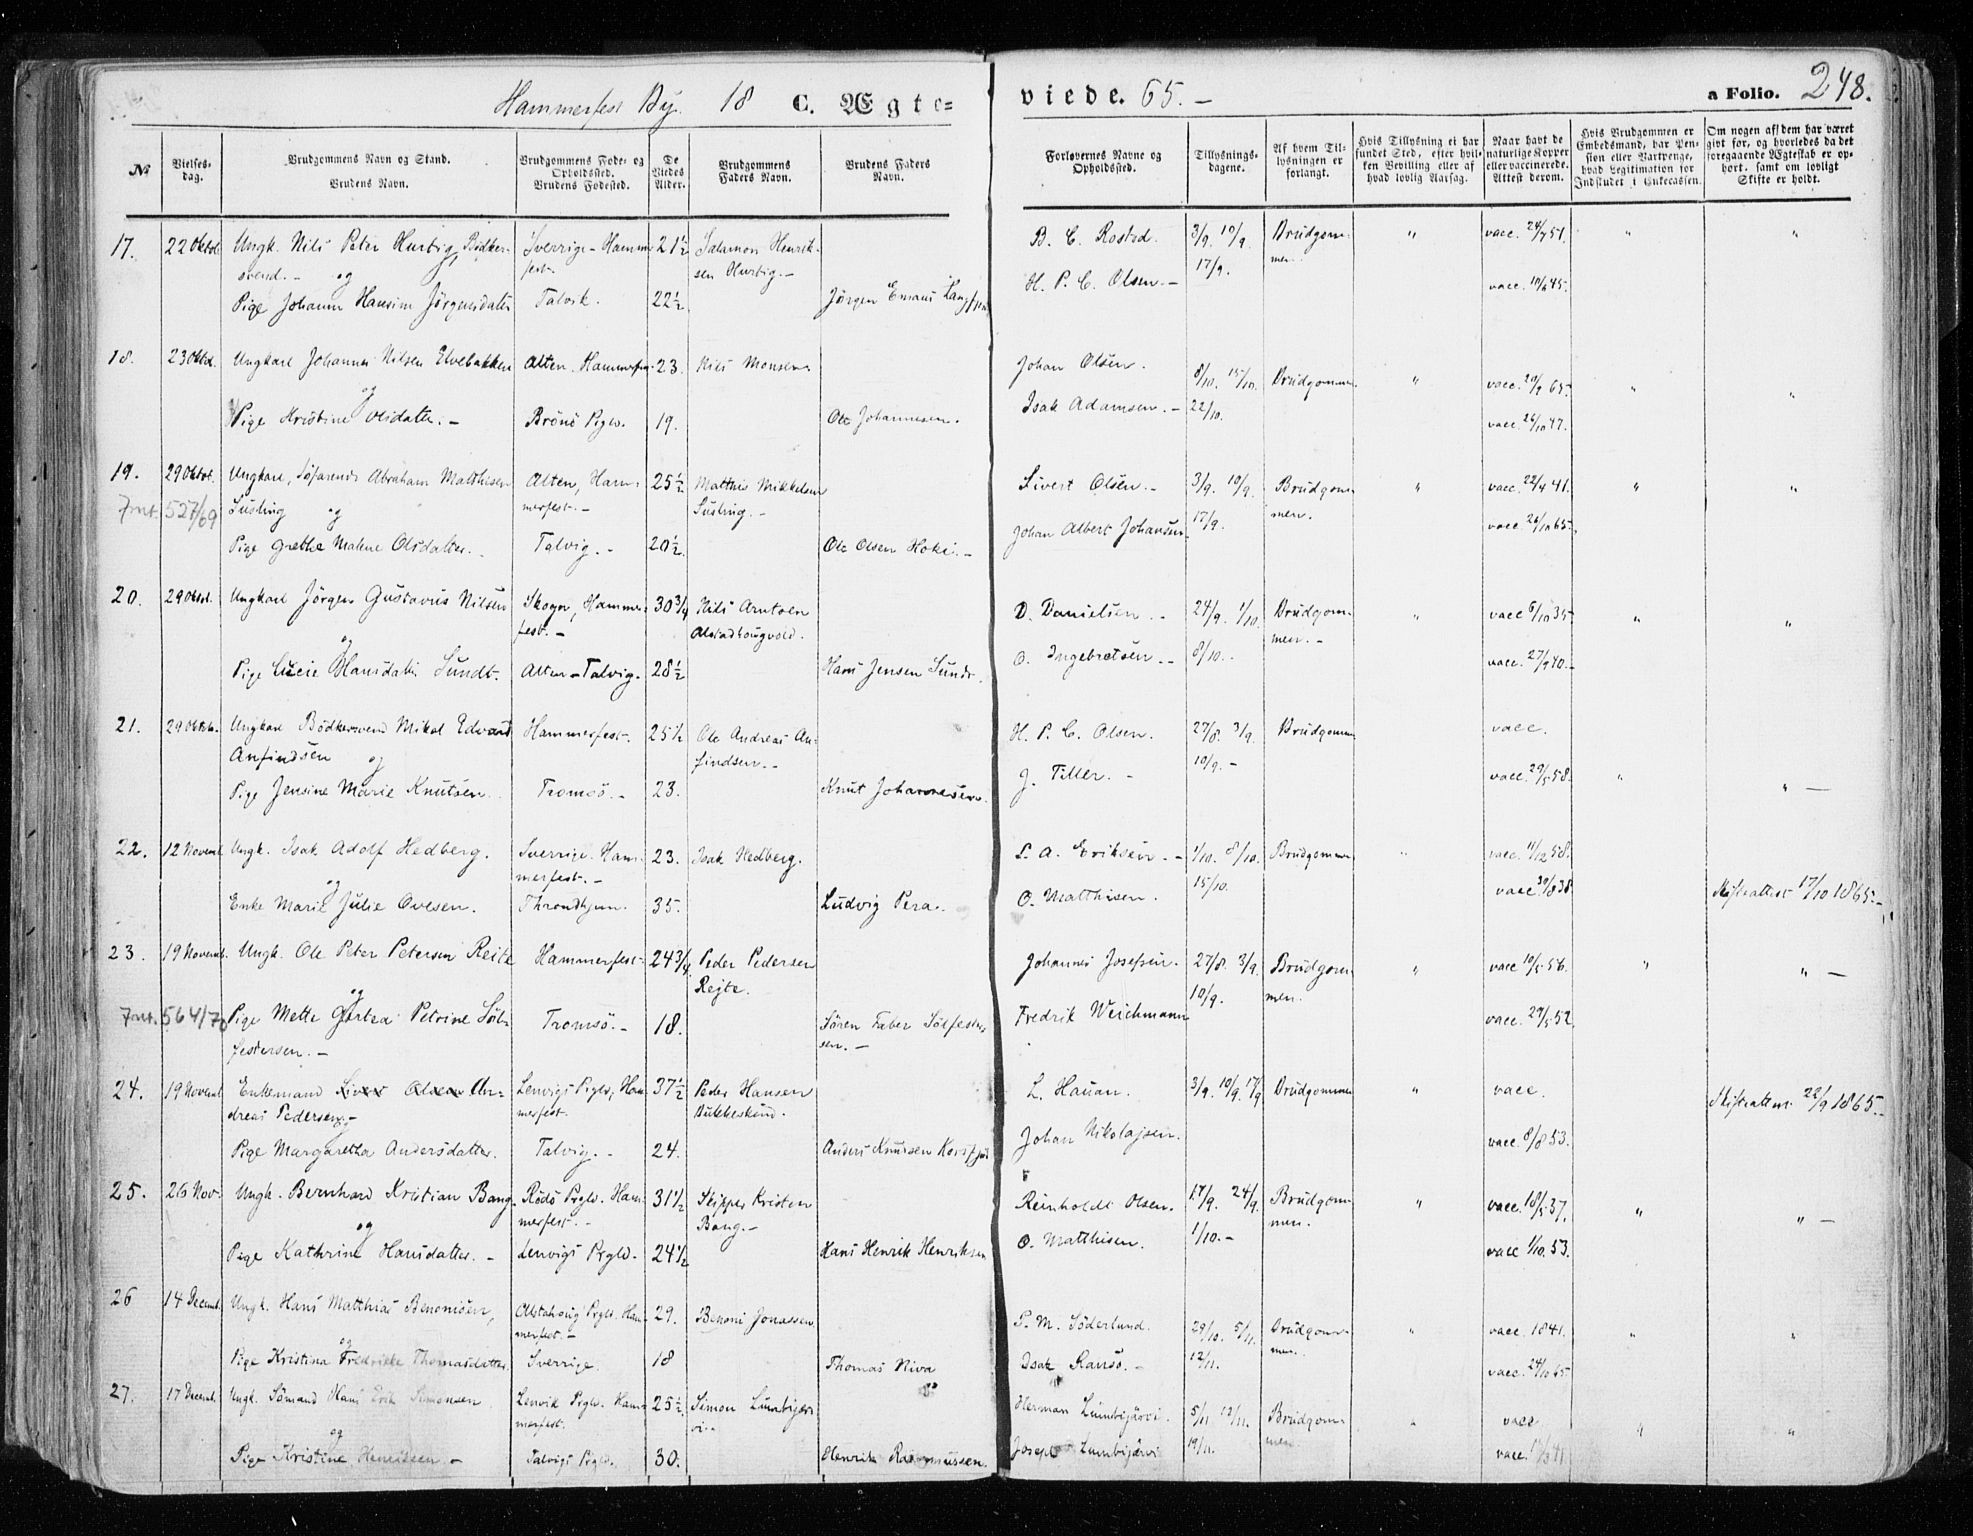 Hammerfest By. 18 C. Ægte= viede. 65. – a Folio. 248.
No
Vielses-dag.
Brudgommens Navn og Stand. Brudens Navn.
Brudgommens Føde- og Opholdssted. Brudens Fødested.
De Viedes Alder.
Brudgommens Faders Navn.
Brudens Faders Navn.
Forlovernes Navne og Opholdssted.
Tillysnings-dagene.
Af hvem Tillysningen er forlangt.
Hvis Tillysning ei har fundet Sted, efter hvilken Bevilling eller af hvad lovlig Aarsag.
Naar havt de naturlige Kopper eller vaccinerede. Attest derom.
Hvis Brudgommen er Embedsmand, har Pension eller Vartpenge, hvad Legitimation for Indskudet i Enkecassen.
Om nogen af dem har været gift før, og hvorledes da det foregaaende Ægteskab er ophørt, samt om lovligt Skifte er holdt.
17. 22 Oktob. Ungk. Nils Peter Hurtig, Bødker- Sverrige – Hamm 21½ Salamon Henrik- B. C. Rostad. 3/9. 10/9. Brudgom- " vacc. 24/7 51. " "
svend. – og fest. sen Hurtig. – 17/9. men.
Pige Johanna Hansine Jørgensdatter Talvik. 22½ Jørgen Emaus Langfjord H. P. C. Olsen. – vacc. 10/6 45.
18. 23 Oktob. Ungkarl Johannes Nilsen Elvebakken Alten. Hammerfest. 23. Nils Monsen Johan Olsen. 8/10. 15/10. Brudgommen " vacc. 20/9 65. " "
og
Pige Kristine Olsdatter. – Brönö Prgld. 19. Ole Johannesen. Isak Adamsen. – 22/10. vacc. 26/10 47.
19. 29 Oktob. Ungkarl, Söfarende Abraham Matthisen Alten, Ham- 25½ Matthis Mikkelsen Sivert Olsen. – 3/9. 10/9. Brudgom- " vacc. 22/4 41. " "
Jnr. 527/69 Susling og merfest. – Susling. – 17/9. men.
Pige Grethe Malene Olsdatter. – Talvig. – 20½. Ole Olsen Hoki. – Johan Albert Johansen vacc. 26/10 65.
20. 29 Oktob. Ungkarl Jörgen Gustavus Nilsen Skoger, Hammer- 30¾ Nils Arntsen D. Danielsen. – 24/9. 1/10. Brudgom- " vacc 6/10 35 " "
og fest. – Alstadhougvold. men. –
Pige Lucie Hansdatter Sundt. Alten – Talvig. 28½ Hans Jensen Sundt. O. Ingebretsen. – 8/10. vacc. 27/9 40. –
21. 29 Oktob. Ungkarl Bödkersvend Mikal Edvard Hammerfest. 25½ Ole Andreas An- H. P. C. Olsen. 27/8. 3/9. Brudgommen vacc.
Anfindsen og findsen. – 10/9. –
Pige Jensine Marie Knutsen. Tromsö. – 23. Knut Johannesen. J. Tiller. – vacc. 29/5 58. " " –
22. 12 Novemb. Ungk. Isak Adolf Hedberg. Sverrige. Ham- 23. Isak Hedberg. S. A. Eriksen. – 1/10. 8/10. Brudgommen " vacc. 11/12 58.
og merfest. – 15/10.
Enke Marie Julie Ovesen. Throndhjem. 35. Ludvig Pera. O. Matthisen. vacc 30/8 38 Skifteattest 17/10 1865. –
23. 19 Novemb. Ungk. Ole Peter Petersen Reite Hammerfest. 24¾ Peder Pedersen Johannes Josefsen. 27/8. 3/9. Brudgom- " vacc 10/5 56. " " –
og Rejte. 10/9. men.
Jnr. 564/70 Pige Mette Gjertea Petrine Sölv- Tromsö. – 18. Sören Faber Sölfester- Fredrik Weichmann vacc. 29/5 52.
festersen. – sen. –
24. 19 Novemb Enkemand Sivert Olsen An- Lenvigs Prgld, Ham 37½ Peder Hansen L. Hauan. 3/9. 10/9. 17/9 Brudgommen " vacc. Skifteattest 22/9 1865. –
dreas Pedersen. – og merfest. Bukkeskind.
Pige Margaretha Andersdatter. Talvig. – 24. Anders Knutsen Korsfjord Johan Nikolajsen. vacc. 8/8 53.
25. 26 Nov. Ungk. Bernhard Kristian Bang Rödö Prgld. Ham- 31½ Skipper Kristen Reinholdt Olsen. 17/9. 24/9. Brudgom- " vacc. 18/5 37. " " –
og merfest. – Bang. – men.
Pige Kathrine Hansdatter. – Lenvigs Prgld. 24½ Hans Henrik Henriksen O. Matthisen. 1/10. – vacc 1/10. 53.
26 14 Decemb. Ungk. Hans Matthias Benonisen, Alstahoug Prgld. Ham- 29. Benoni Jonassen. P. M. Söderlund. 29/10. 5/11. Brudgom- " vacc. 1841. " "
og merfest. – men.
Pige Kristina Fredrikke Thomasdatter. Sverrige. 18 Thomas Niva Isak Ransö. – 12/11. vacc. 24/10 65
27. 17 Decemb. Ungk. Sömand Hans Erik Simonsen Lenvik Prgld. Ham- 25½. Simon Lumbijär- Herman Lumbijärvi. 5/11 12/11. Brudgom- " vacc " "
og merfest. vi. – men.
Pige Kristine Henriksen – Talvigs Prgld. 30. Henrik Rasmussen. Joseph Lumbijärvi 19/11. vacc.